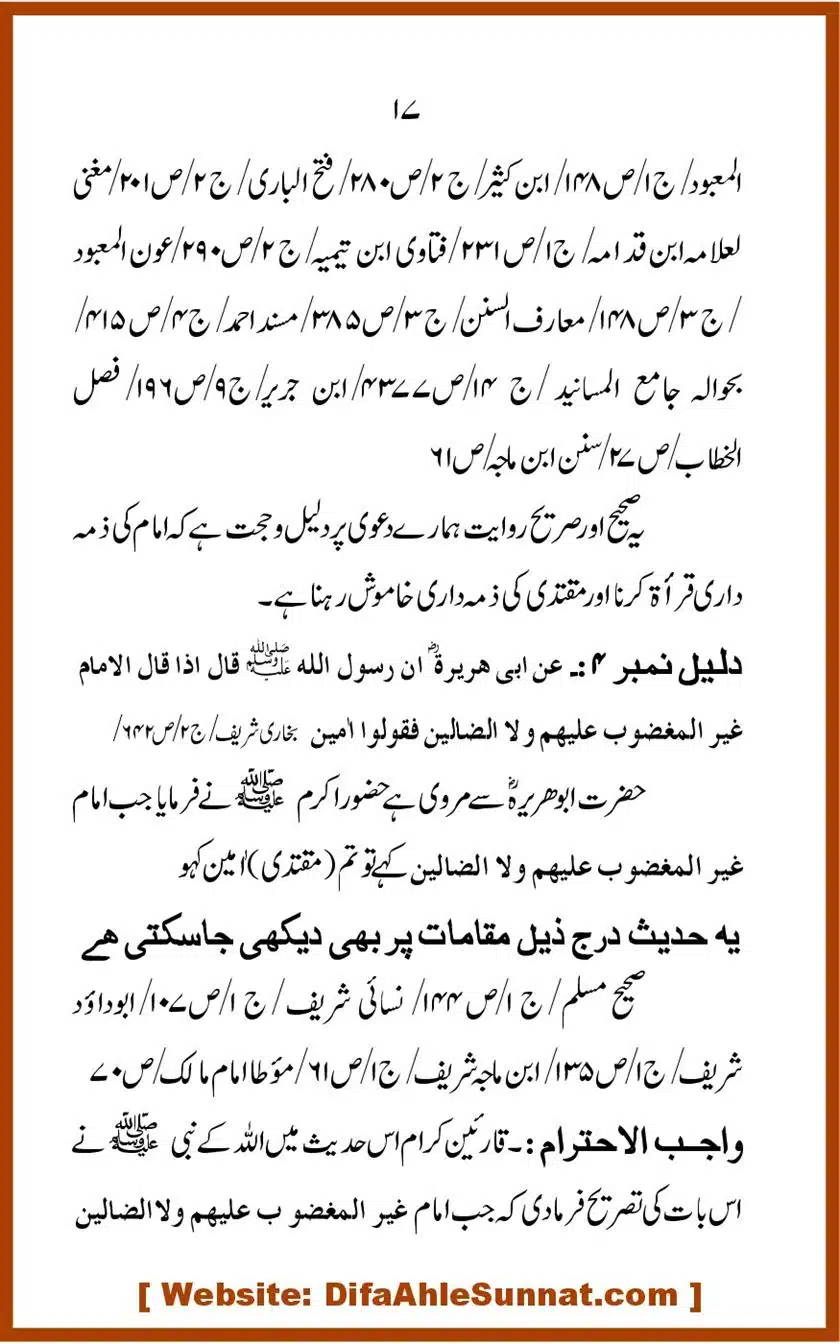 ۱۷
المعبود/ ج۱/ص۱۴۸/ ابن کثیر/ ج ۲/ص۲۸۰/ فتح الباری/ ج ۲/ص۲۰۱/مغنی
لعلامہ ابن قدامہ/ ج۱/ص ۲۳۱/فتاوی ابن تیمیہ/ ج ۲/ص۲۹۰/عون المعبود
/ ج ۳/ص۱۴۸/ معارف السنن/ ج ۳/ص۳۸۵/ مسند احمد/ ج۴/ص ۴۱۵/
بحوالہ جامع المسانید / ج ۱۴/ص۴۳۷۷/ ابن جریر/ ج۹/ص۱۹۶/ فصل
الخطاب/ص۲۷/سنن ابن ماجہ/ص۶۱
یہ صحیح اور صریح روایت ہمارے دعوی پر دلیل و حجت ہے کہ امام کی ذمہ
داری قرأۃ کرنا اور مقتدی کی ذمہ داری خاموش رہنا ہے۔
دلیل نمبر ۴ :۔ عن ابی ھریرۃؓ ان رسول الله ﷺ قال اذا قال الامام
غیر المغضوب علیھم ولا الضالین فقولوا اٰمین بخاری شریف/ ج۲/ص۶۴۲/
حضرت ابوھریرہؓ سے مروی ہے حضور اکرم ﷺ نے فرمایا جب امام
غیر المغضوب علیھم ولا الضالین کہے تو تم (مقتدی) اٰمین کہو
یہ حدیث درج ذیل مقامات پر بھی دیکھی جاسکتی ھے
صحیح مسلم/ ج ۱/ص ۱۴۴/ نسائی شریف / ج ۱/ص۱۰۷/ ابوداؤد
شریف/ ج۱/ص۱۳۵/ ابن ماجہ شریف/ ج۱/ص۶۱/مؤطا امام مالک/ص۷۰
واجب الاحترام :۔ قارئین کرام اس حدیث میں اللہ کے نبی ﷺ نے
اس بات کی تصریح فرمادی کہ جب امام غیر المغضوب علیھم ولا الضالین
[ Website: DifaAhleSunnat.com ]